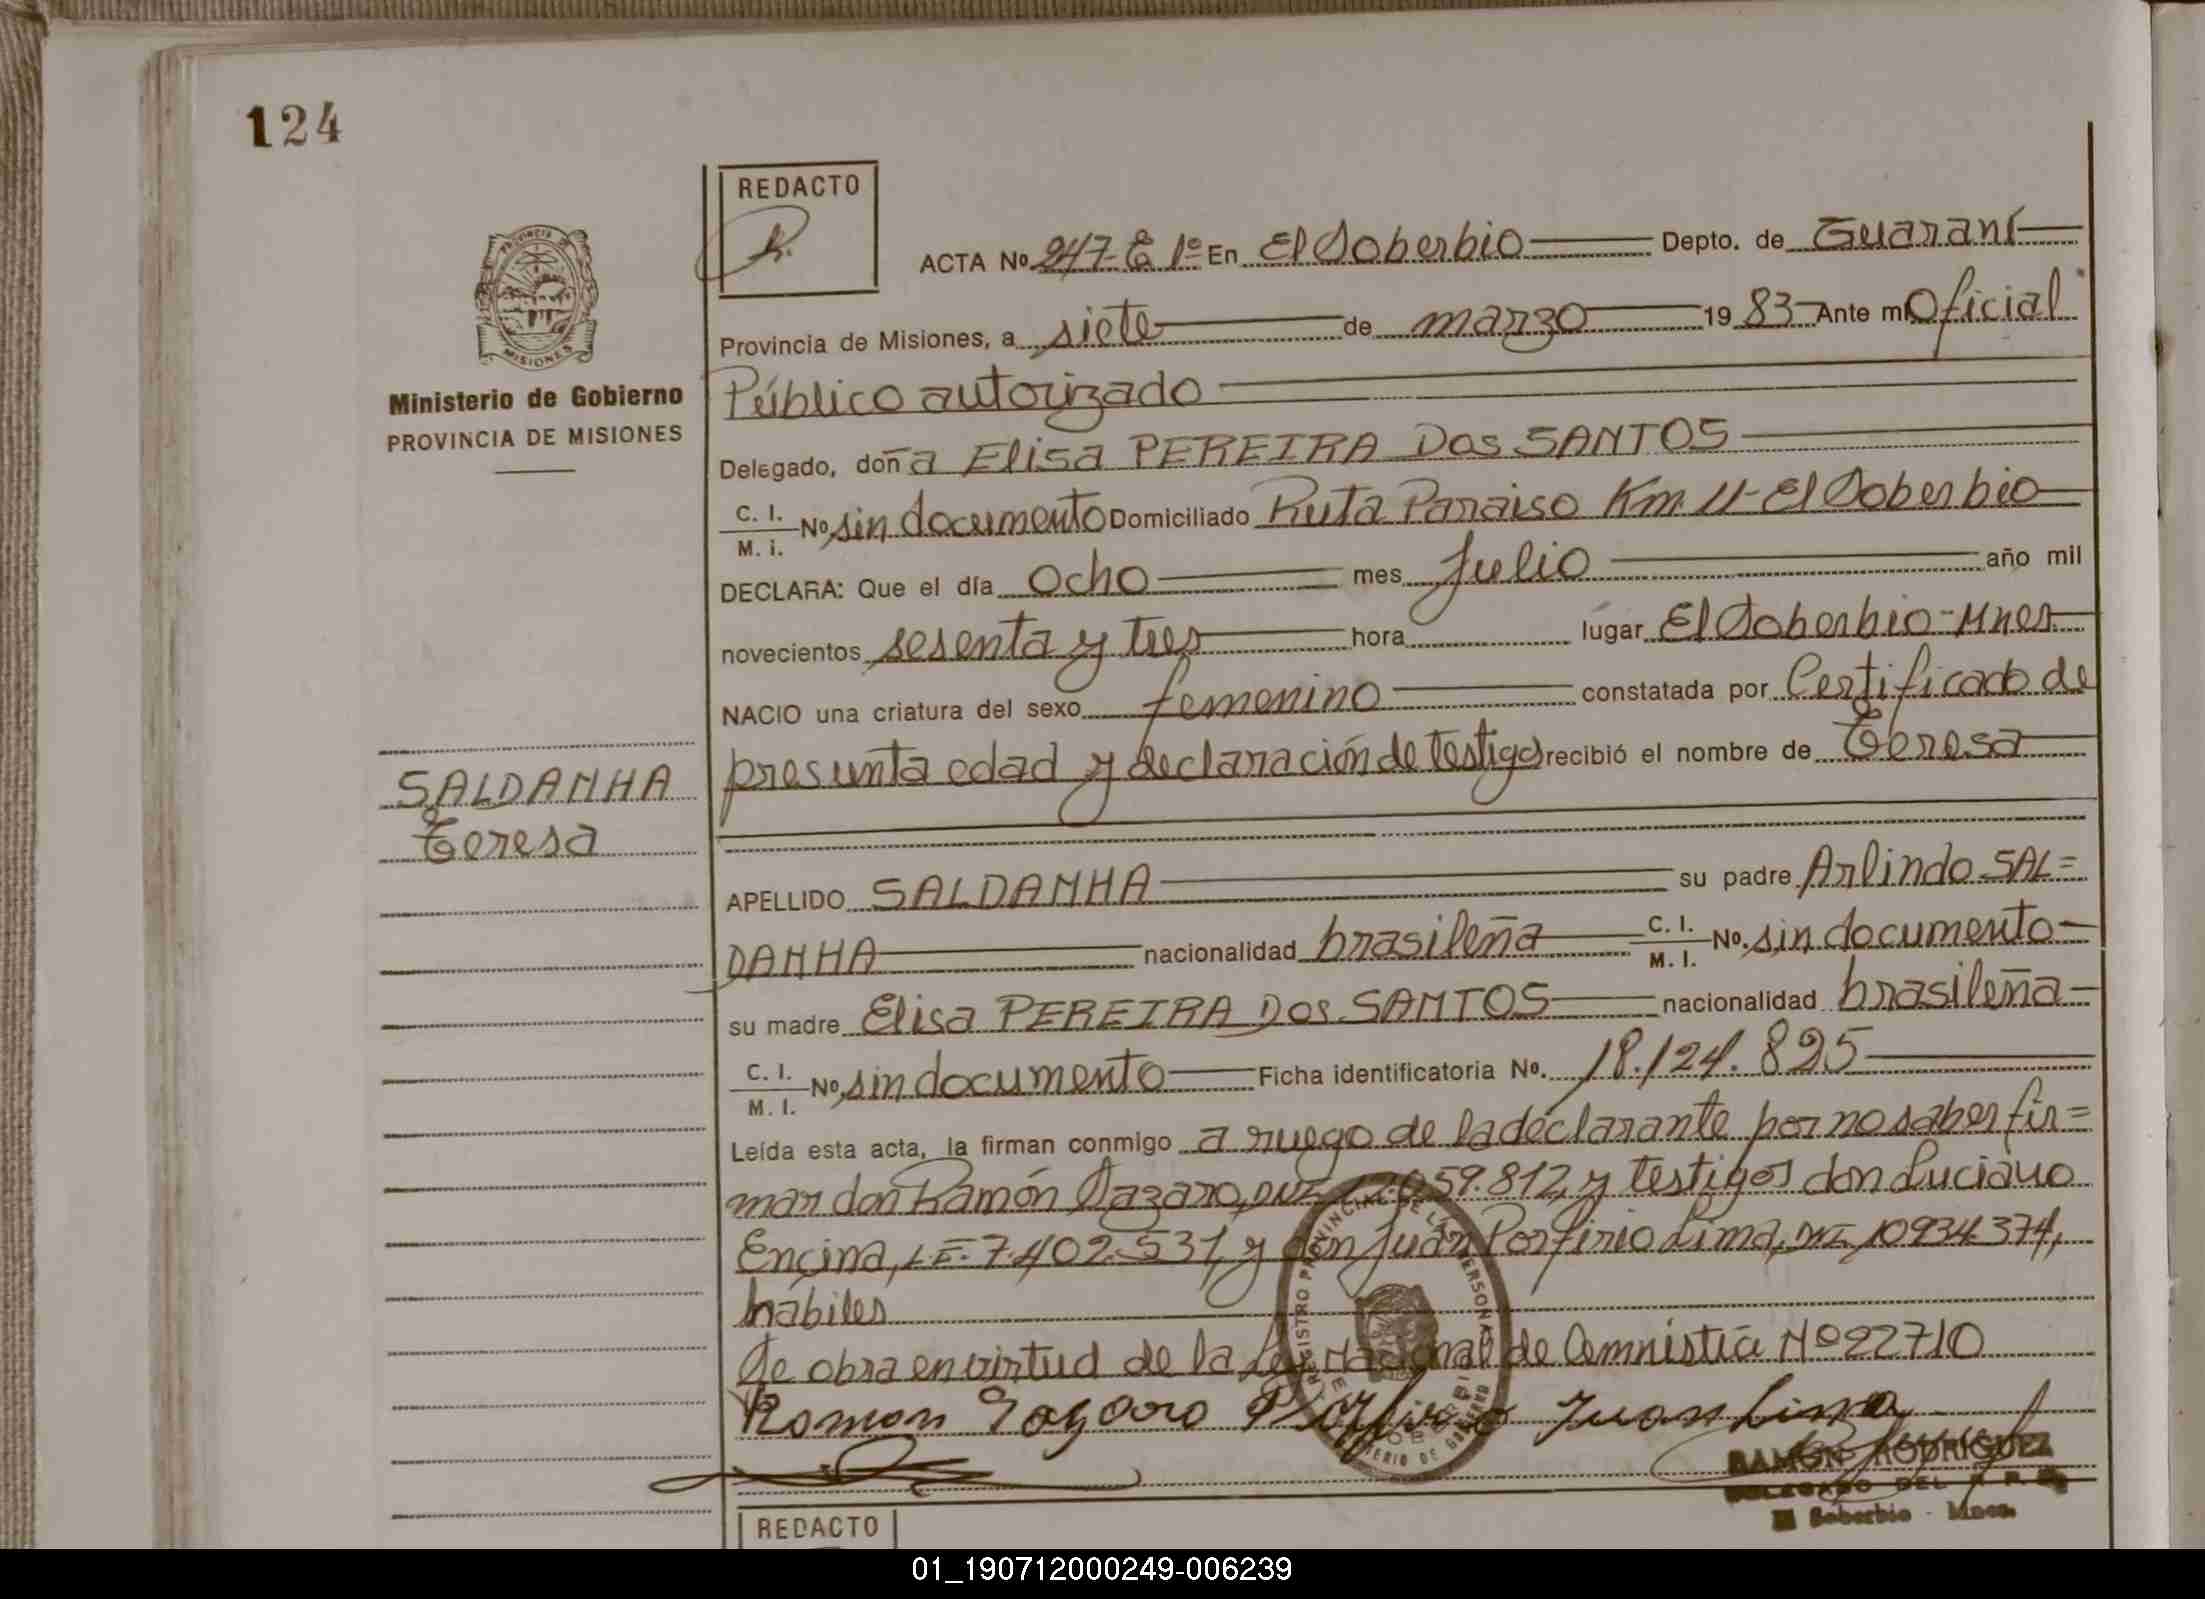 124
REDACTO
ACTA Nº 247-E 1º En El Soberbio Depto. de Guaraní
Provincia de Misiones, a siete de marzo 1983 Ante mí Oficial
Público autorizado
Ministerio de Gobierno
PROVINCIA DE MISIONES
Delegado, doña Elisa PEREIRA DOS SANTOS
C. I. M. i. Nº sin documento Domiciliado Ruta Paraiso Km 11-El Soberbio
DECLARA: Que el día ocho mes Julio año mil
novecientos sesenta y tres hora lúgar El Soberbio-Mnes
NACIO una criatura del sexo femenino constatada por Certificado de
presunta edad y declaración de testigos recibió el nombre de Teresa
SALDANHA
Teresa
APELLIDO SALDANHA su padre Arlindo SAL=
DANHA nacionalidad brasileña C. I. M. I. Nº. sin documento
su madre Elisa PEREIRA DOS SANTOS nacionalidad brasileña
C. I. M. I. Nº sin documento Ficha identificatoria Nº. 18.124.825
Leída esta acta, la firman conmigo a ruego de la declarante por no saber fir=
mar don Ramón DNI 059.812, y testigos don Luciano
Encina, L.E. 7.402.531, y don Juan Porfirio Lima, DNI 10934.374,
hábiles
Se obra en virtud de la Ley Nacional de Amnistía Nº 22710
Ramon Porfirio Juan Lima
REGISTRO PROVINCIAL DE LAS PERSONAS
MINISTERIO DE GOBIERNO
RAMÓN RODRIGUEZ
DELEGADO DEL R. P.
El Soberbio - Mnes.
REDACTO
01_190712000249-006239